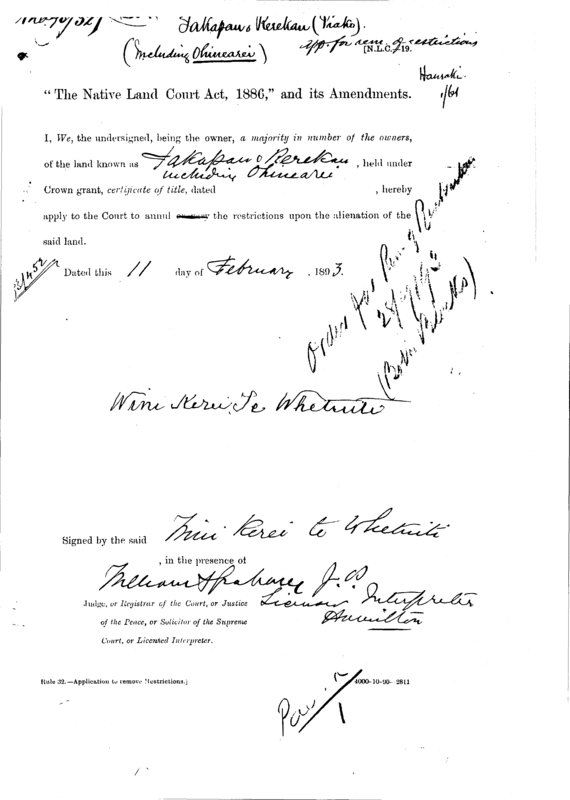 Takapau o Rerekau (Piako).
(Including Ohinearei)
app for rem. of restrictions
[N.L.C. 19.
Hauraki
1/61
"The Native Land Court Act, 1886," and its Amendments.
I, We, the undersigned, being the owner, a majority in number of the owners,
of the land known as Takapau o Rerekau including Ohinearei, held under
Crown grant, certificate of title, dated , hereby
apply to the Court to annul the restrictions upon the alienation of the
said land.
Dated this 11 day of February, 1893.
Order for Rem of Restriction
(Both Blocks)
Wini Kerei Te Whetuiti
Signed by the said Wini Kerei te Whetuiti
, in the presence of
J.P.
Licensed Interpreter
Hamilton
Judge, or Registrar of the Court, or Justice
of the Peace, or Solicitor of the Supreme
Court, or Licensed Interpreter.
Rule 32.—Application to remove Restrictions.]
4000-10-90—2811
1